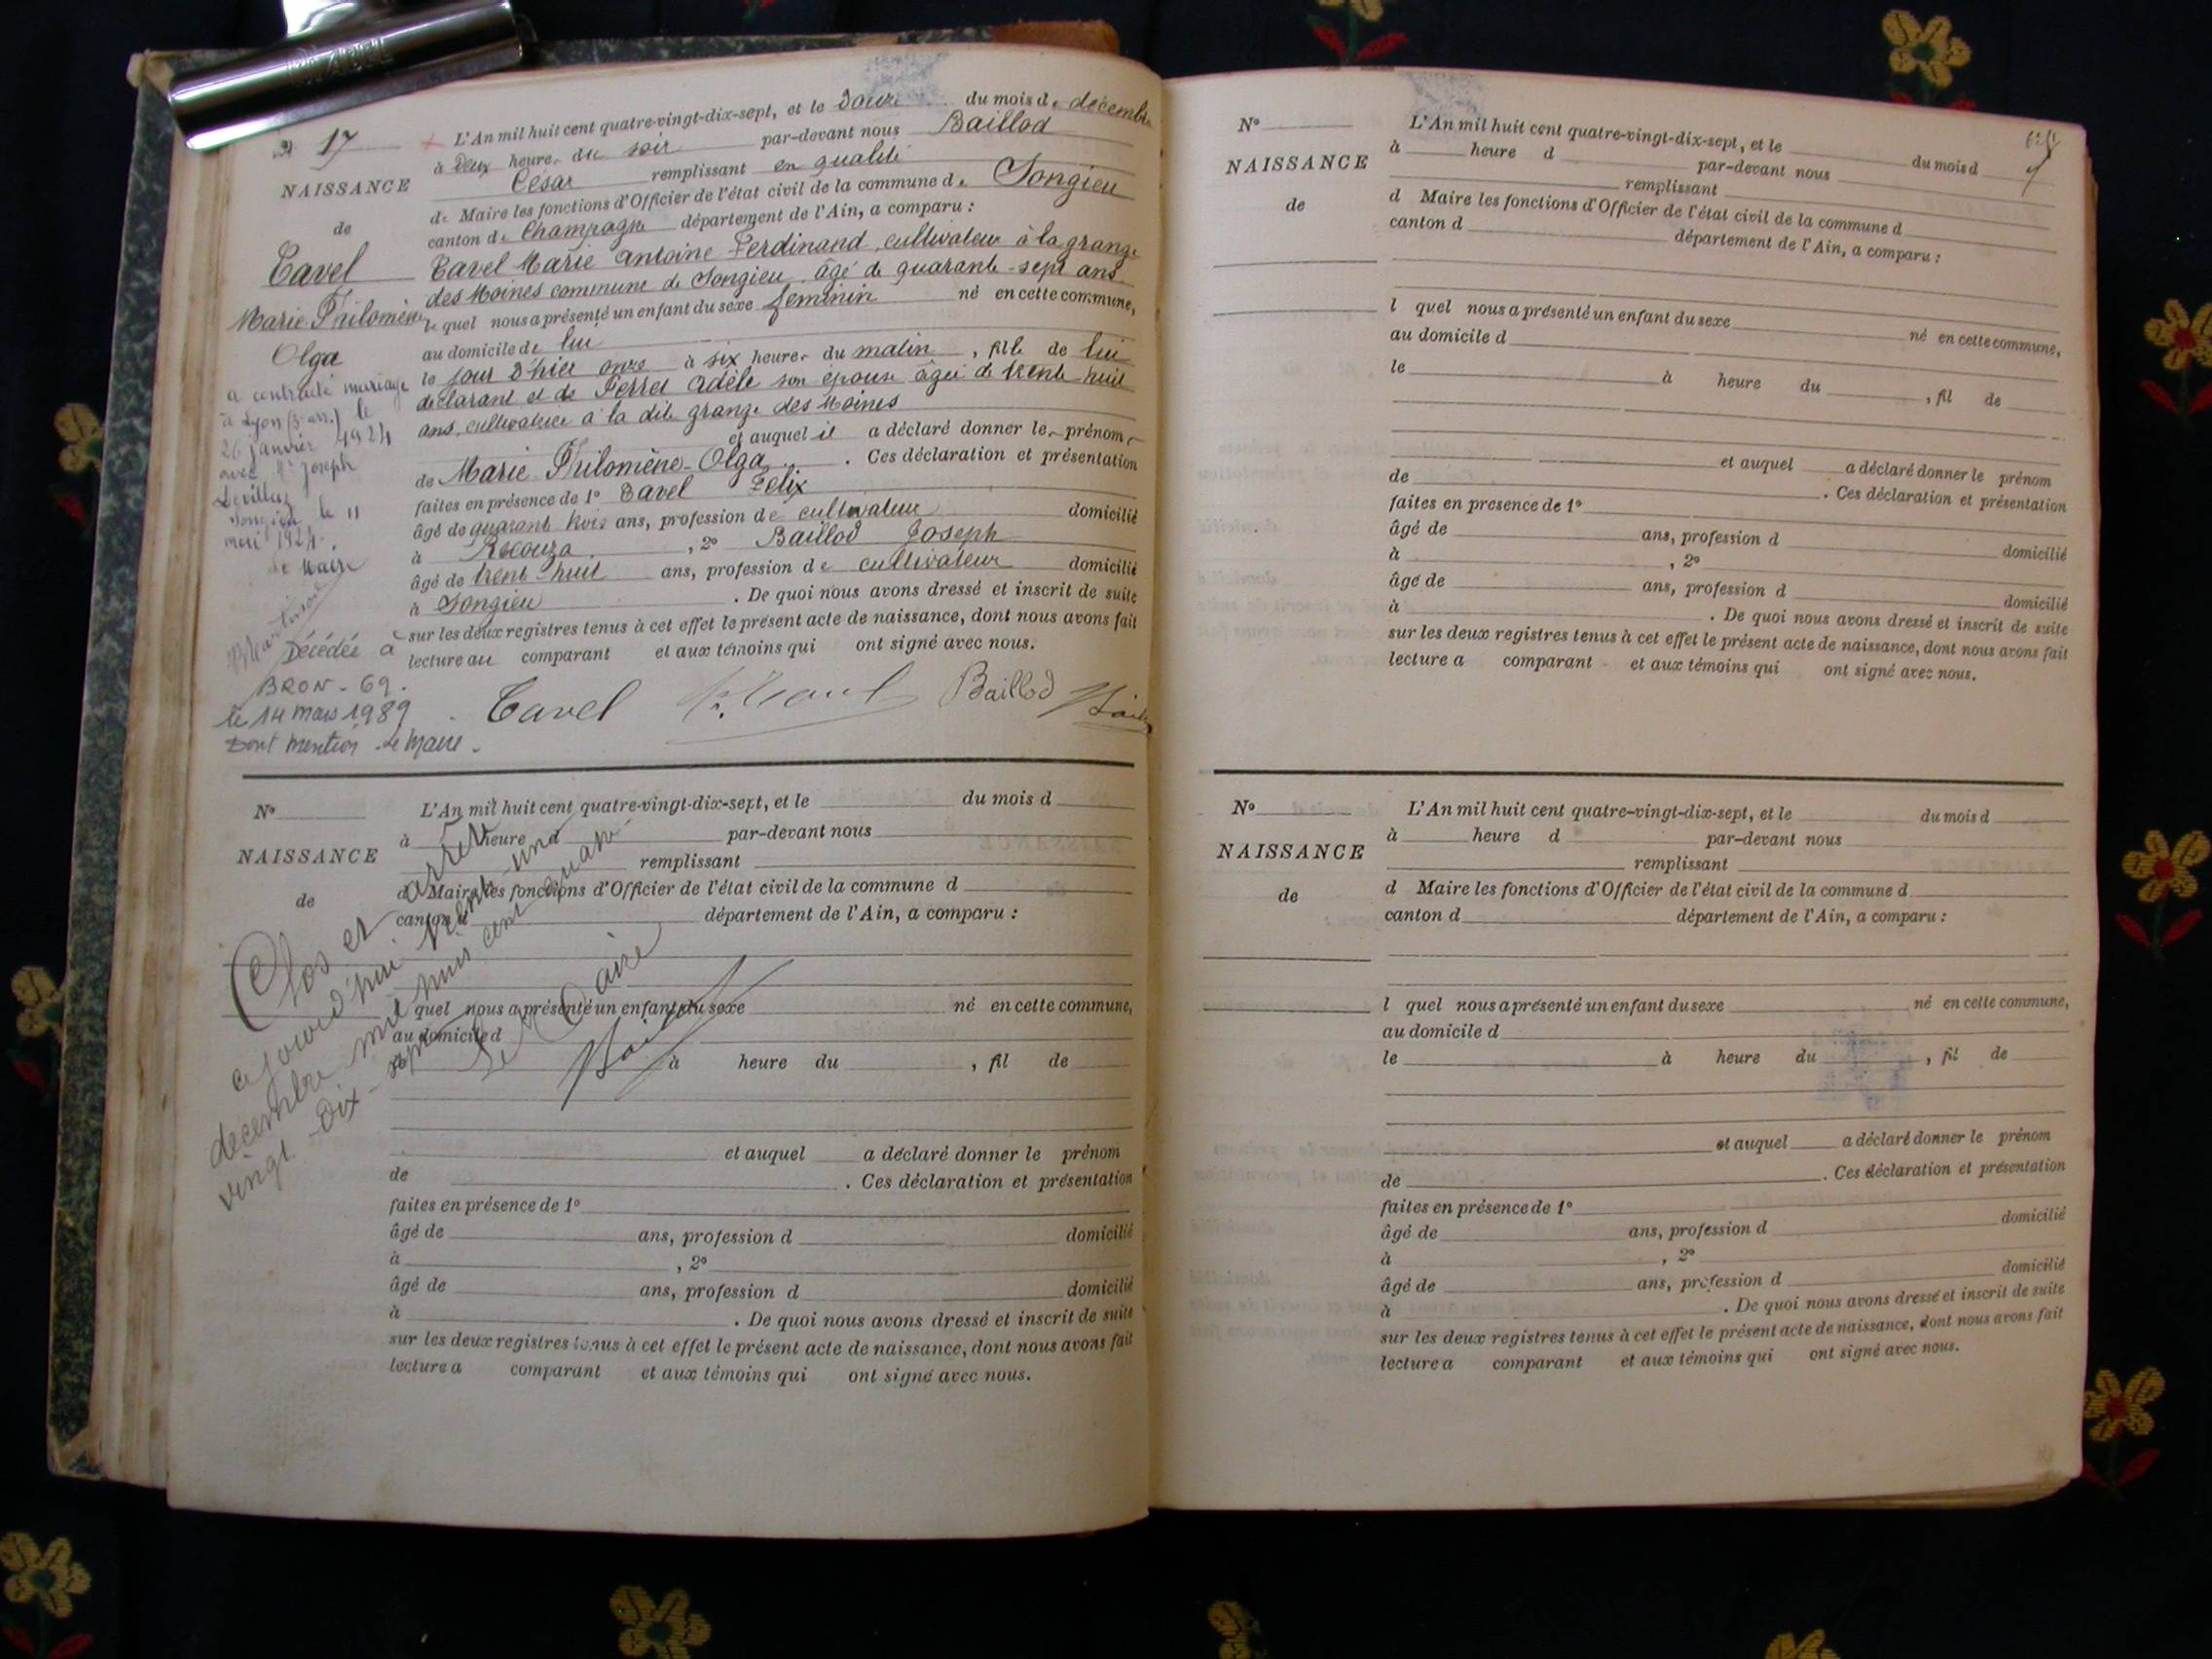 17
NAISSANCE
de
Tavel
Marie-Philomène
Olga
a contracté mariage
à Lyon (3e arr.) le
26 janvier 1924
avec Mr Joseph
Songieu le 11
mai 1924.
Le Maire
Décédée à
BRON - 69.
le 14 mars 1989
Dont mention - le Maire.
L'An mil huit cent quatre-vingt-dix-sept, et le douze du mois de décembre
à deux heures du soir par-devant nous Baillod
César remplissant en qualité
de Maire les fonctions d'Officier de l'état civil de la commune de Songieu
canton de Champagne département de l'Ain, a comparu :
Tavel Marie Antoine Ferdinand, cultivateur à la grange
des Moines commune de Songieu, âgé de quarante-sept ans
lequel nous a présenté un enfant du sexe féminin né en cette commune,
au domicile de lui
le jour d'hier onze à six heures du matin, fille de lui
déclarant et de Perret Adèle son épouse âgée de trente-huit
ans, cultivatrice à la dite grange des Moines
et auquel il a déclaré donner les prénoms
de Marie-Philomène-Olga. Ces déclaration et présentation
faites en présence de 1º Tavel Félix
âgé de quarante trois ans, profession de cultivateur domicilié
à , 2º Baillod Joseph
âgé de trente-huit ans, profession de cultivateur domicilié
à Songieu. De quoi nous avons dressé et inscrit de suite
sur les deux registres tenus à cet effet le présent acte de naissance, dont nous avons fait
lecture au comparant et aux témoins qui ont signé avec nous.
Tavel Baillod
Nº
NAISSANCE
de
L'An mil huit cent quatre-vingt-dix-sept, et le du mois d
à heure d par-devant nous
remplissant
d Maire les fonctions d'Officier de l'état civil de la commune d
canton d département de l'Ain, a comparu :
l quel nous a présenté un enfant du sexe né en cette commune,
au domicile d
le à heure du , fil de
et auquel a déclaré donner le prénom
de . Ces déclaration et présentation
faites en présence de 1º
âgé de ans, profession d domicilié
à , 2º
âgé de ans, profession d domicilié
à . De quoi nous avons dressé et inscrit de suite
sur les deux registres tenus à cet effet le présent acte de naissance, dont nous avons fait
lecture a comparant et aux témoins qui ont signé avec nous.
Clos et arrêté
ce jourd'hui trente-un
décembre mil huit cent quatre
vingt-dix-sept
Le Maire
Nº
NAISSANCE
de
L'An mil huit cent quatre-vingt-dix-sept, et le du mois d
à heure d par-devant nous
remplissant
d Maire les fonctions d'Officier de l'état civil de la commune d
canton d département de l'Ain, a comparu :
l quel nous a présenté un enfant du sexe né en cette commune,
au domicile d
le à heure du , fil de
et auquel a déclaré donner le prénom
de . Ces déclaration et présentation
faites en presence de 1º
âgé de ans, profession d domicilié
à , 2º
âgé de ans, profession d domicilié
à . De quoi nous avons dressé et inscrit de suite
sur les deux registres tenus à cet effet le présent acte de naissance, dont nous avons fait
lecture a comparant et aux témoins qui ont signé avec nous.
Nº
NAISSANCE
de
L'An mil huit cent quatre-vingt-dix-sept, et le du mois d
à heure d par-devant nous
remplissant
d Maire les fonctions d'Officier de l'état civil de la commune d
canton d département de l'Ain, a comparu :
l quel nous a présenté un enfant du sexe né en cette commune,
au domicile d
le à heure du , fil de
et auquel a déclaré donner le prénom
de . Ces déclaration et présentation
faites en présence de 1º
âgé de ans, profession d domicilié
à , 2º
âgé de ans, profession d domicilié
à . De quoi nous avons dressé et inscrit de suite
sur les deux registres tenus à cet effet le présent acte de naissance, dont nous avons fait
lecture a comparant et aux témoins qui ont signé avec nous.